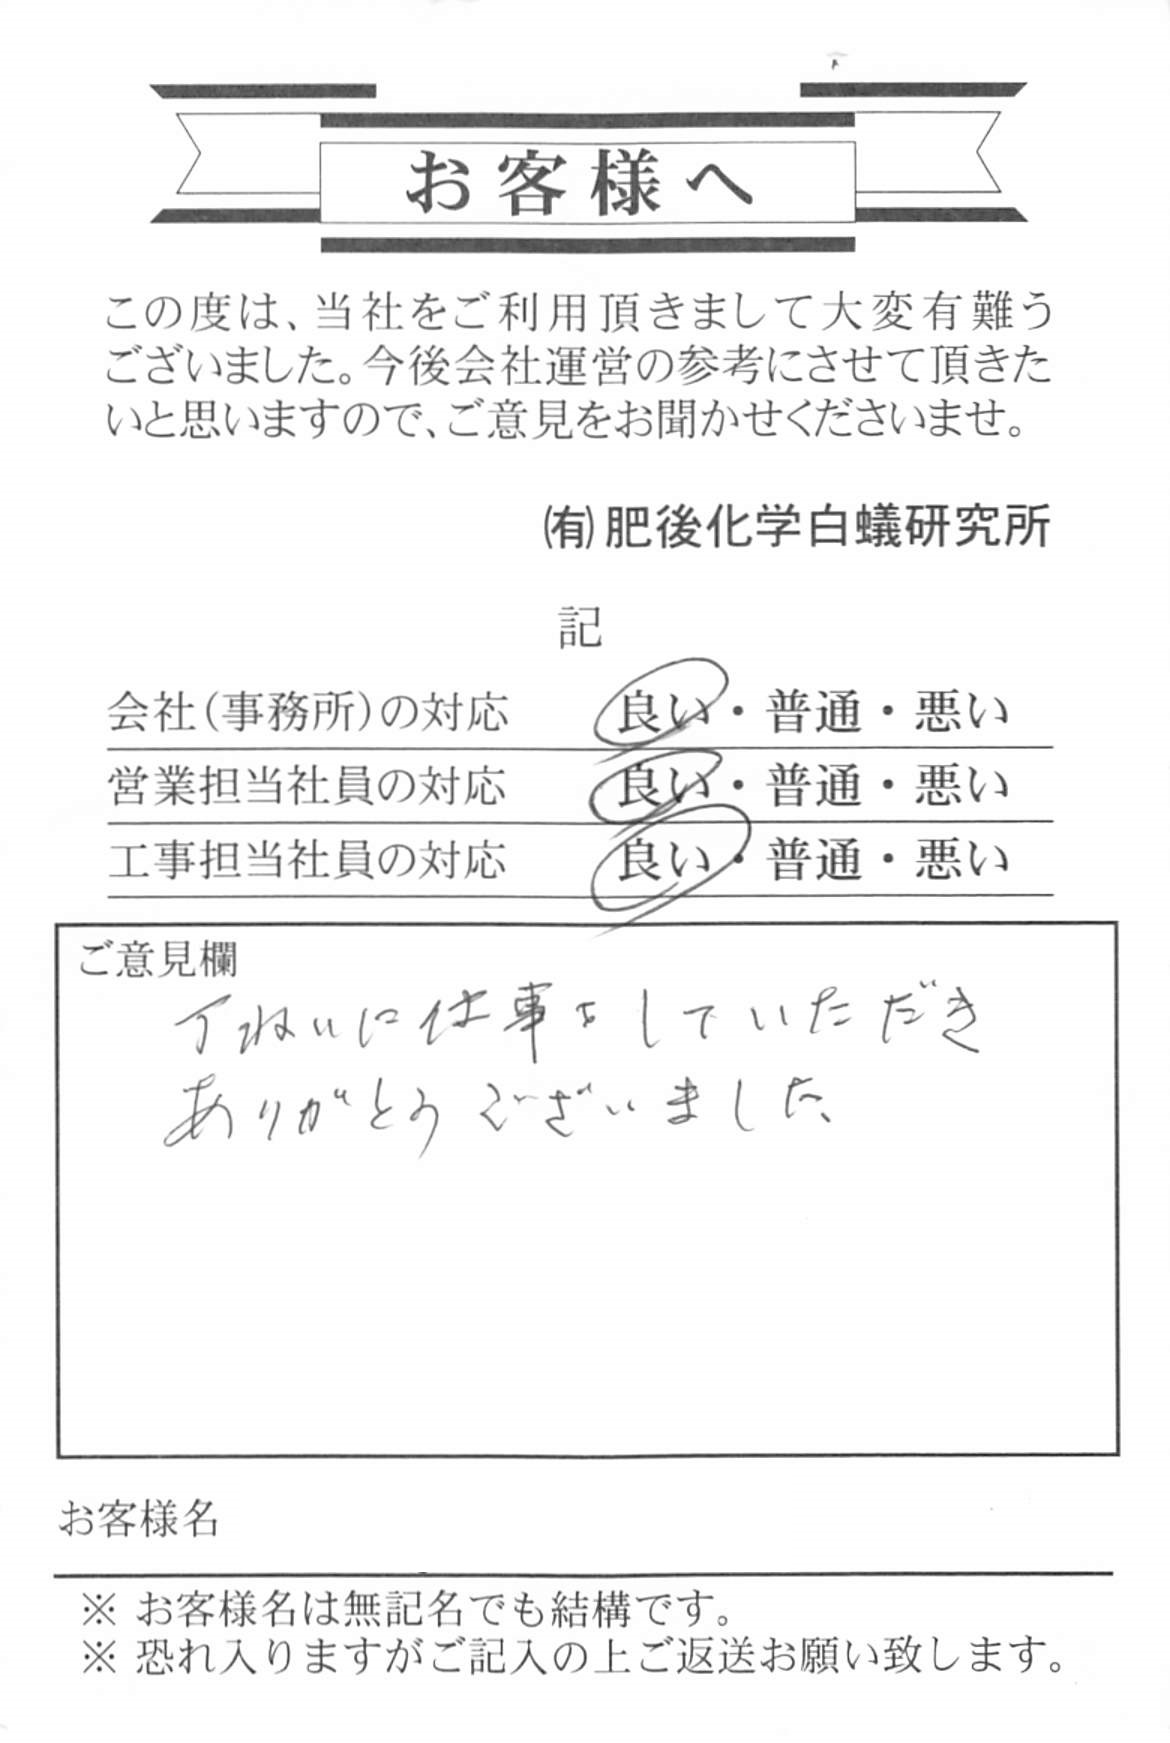 お客様へ
この度は、当社をご利用頂きまして大変有難う
ございました。今後会社運営の参考にさせて頂きた
いと思いますので、ご意見をお聞かせくださいませ。
㈲肥後化学白蟻研究所
記
会社(事務所)の対応 良い・普通・悪い
営業担当社員の対応 良い・普通・悪い
工事担当社員の対応 良い・普通・悪い
ご意見欄
丁ねいに仕事をしていただき
ありがとうございました
お客様名
※ お客様名は無記名でも結構です。
※ 恐れ入りますがご記入の上ご返送お願い致します。